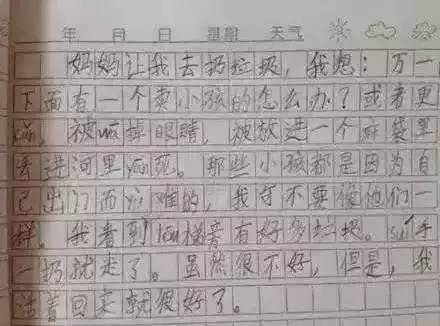 年 月 日 星期 天气
妈妈让我去扔垃圾，我想：万一
下面有一个卖小孩的怎么办？或者更
被 掉眼睛，被放进一个麻袋里
丢进河里yān死。那些小孩都是因为自
己出门而 难的，我可不要像他们一
样。我看到 有好多垃圾。suí手
一扔就走了。虽然很不好，但是，我
活着回来就很好了。